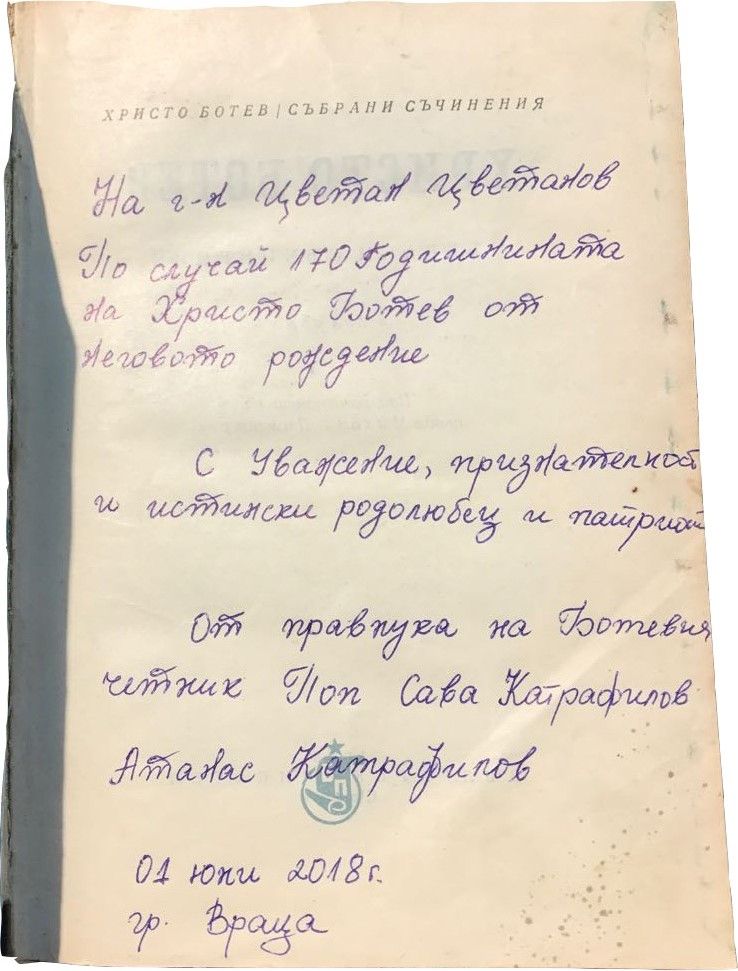 ХРИСТО БОТЕВ | СЪБРАНИ СЪЧИНЕНИЯ
На г-н Цветан Цветанов
По случай 170 Годишнината
на Христо Ботев от
неговото рождение
С Уважение, признателност
и истински родолюбец и патриот
От правнука на Ботевия
четник Поп Сава Катрафилов
Атанас Катрафилов
01 юни 2018 г.
гр. Враца